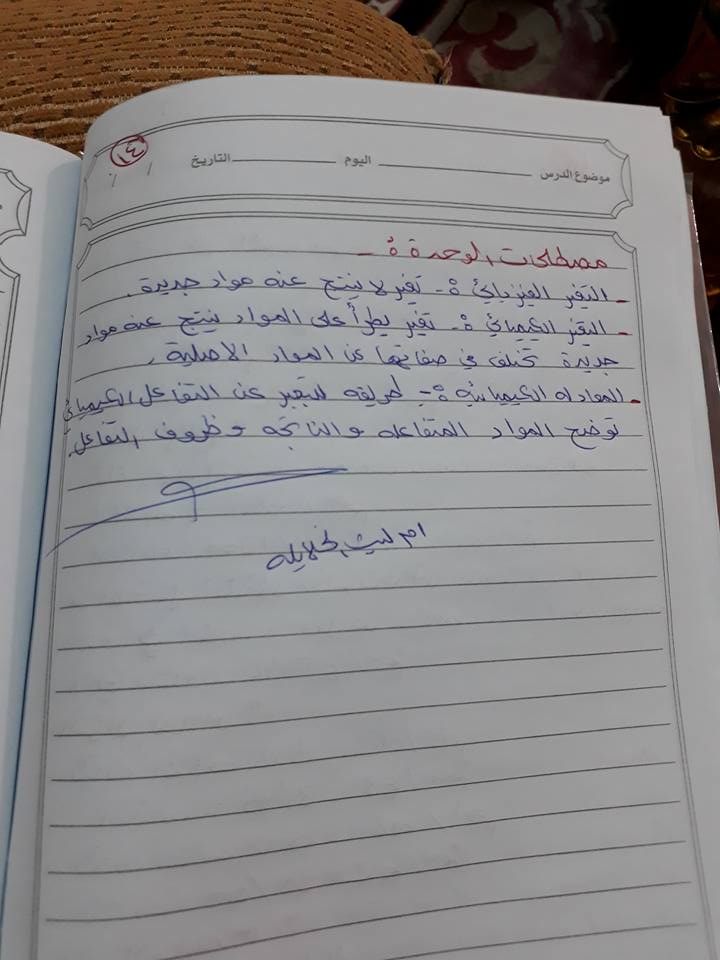 موضوع الدرس ــــــــ اليوم ــــــــ التاريخ
١٤
/ /
مصطلحات الوحدة :-
- التغير الفيزيائي :- تغير لا ينتج عنه مواد جديدة .
- التغير الكيميائي :- تغير يطرأ على المواد ينتج عنه مواد
جديدة تختلف في صفاتها عن المواد الاصلية .
- المعادله الكيميائيه :- طريقه للتعبير عن التفاعل الكيميائي
توضح المواد المتفاعله والناتجه وظروف التفاعل.
ام ليث الخلايله